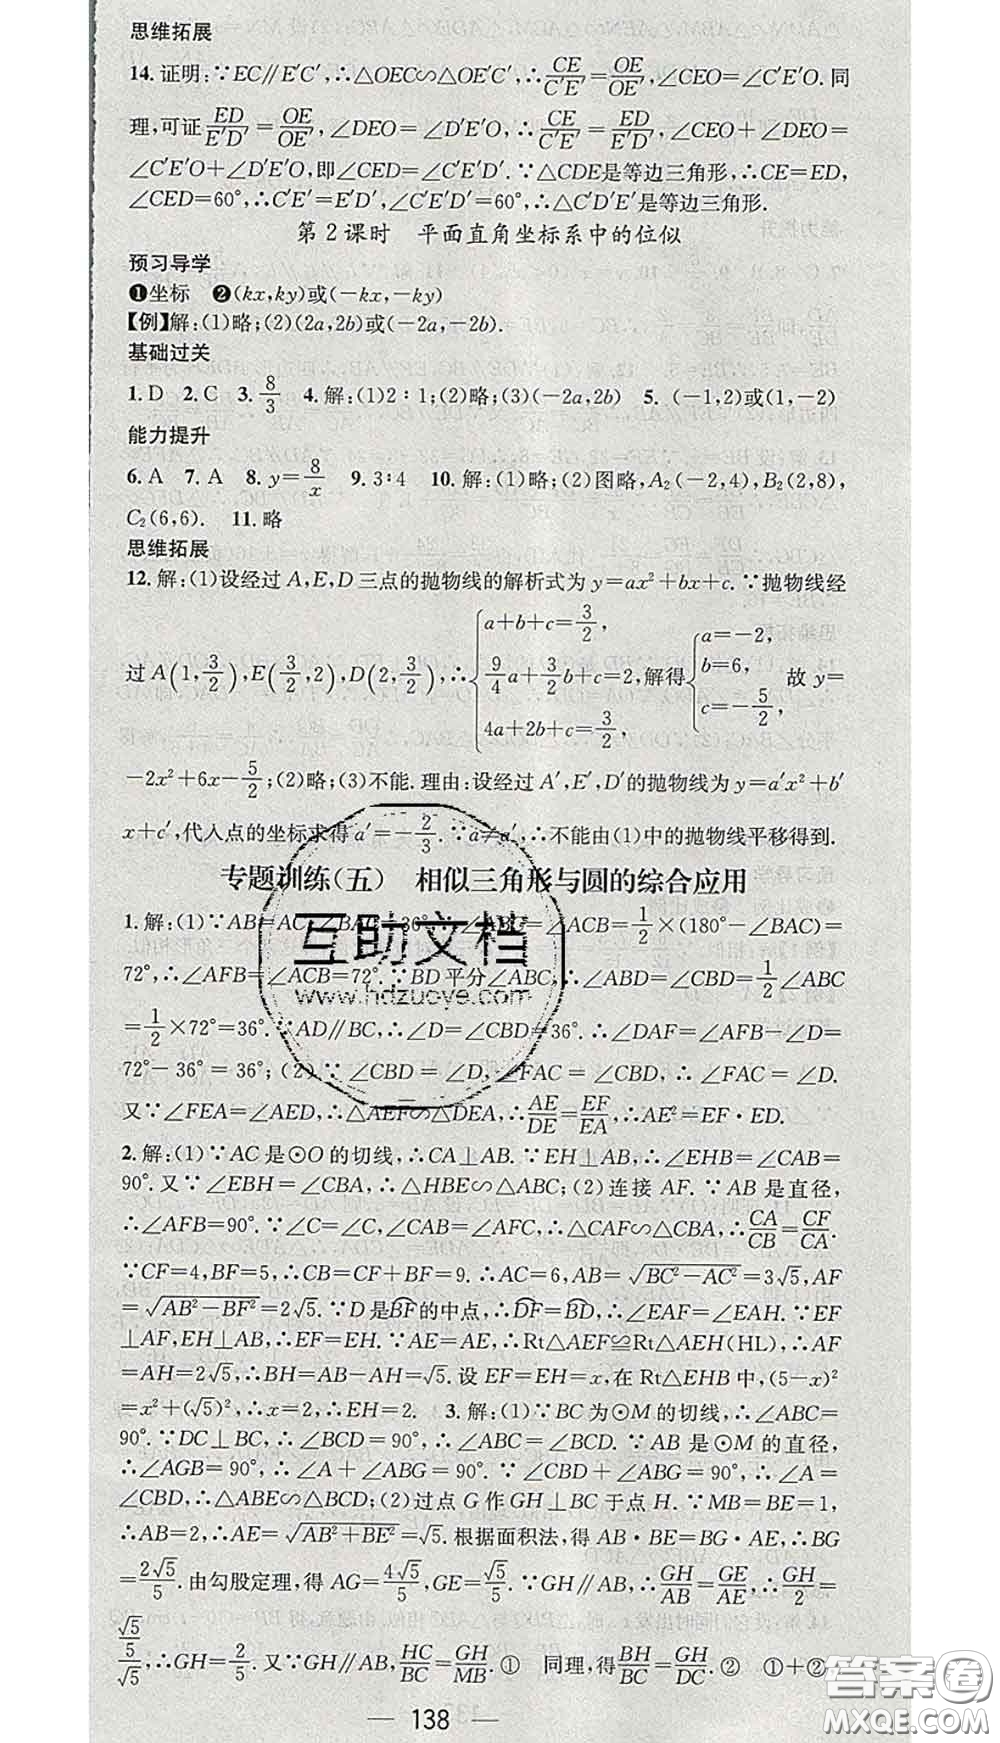 思维拓展
14. 证明:∵EC∥E′C′,∴△OEC∽△OE′C′,∴CE/C′E′=OE/OE′,∠CEO=∠C′E′O.同
理,可证ED/E′D′=OE/OE′,∠DEO=∠D′E′O,∴CE/C′E′=ED/E′D′,∠CEO+∠DEO=
∠C′E′O+∠D′E′O,即∠CED=∠C′E′D′.∵△CDE是等边三角形,∴CE=ED,
∠CED=60°,∴C′E′=E′D′,∠C′E′D′=60°,∴△C′D′E′是等边三角形.
第2课时 平面直角坐标系中的位似
预习导学
❶坐标 ❷(kx,ky)或(-kx,-ky)
【例】解:(1)略;(2)(2a,2b)或(-2a,-2b).
基础过关
1. D 2. C 3. 8/3 4. 解:(1)2∶1;(2)略;(3)(-2a,2b) 5. (-1,2)或(1,-2)
能力提升
6. A 7. A 8. y=8/x 9. 3∶4 10. 解:(1)略;(2)图略,A₂(-2,4),B₂(2,8),
C₂(6,6). 11. 略
思维拓展
12. 解:(1)设经过A,E,D三点的抛物线的解析式为y=ax²+bx+c.∵抛物线经
过A(1,3/2),E(3/2,2),D(2,3/2),∴{a+b+c=3/2, 9/4a+3/2b+c=2, 4a+2b+c=3/2, 解得{a=-2, b=6, c=-5/2, 故y=
-2x²+6x-5/2;(2)略;(3)不能.理由:设经过A′,E′,D′的抛物线为y=a′x²+b′
x+c′,代入点的坐标求得a′=-2/3.∵a≠a′,∴不能由(1)中的抛物线平移得到.
专题训练(五) 相似三角形与圆的综合应用
1. 解:(1)∵AB=AC,∠BAC=36°,∴∠ABC=∠ACB=1/2×(180°-∠BAC)=
72°,∴∠AFB=∠ACB=72°.∵BD平分∠ABC,∴∠ABD=∠CBD=1/2∠ABC
=1/2×72°=36°.∵AD∥BC,∴∠D=∠CBD=36°.∴∠DAF=∠AFB-∠D=
72°-36°=36°;(2)∵∠CBD=∠D,∠FAC=∠CBD,∴∠FAC=∠D.
又∵∠FEA=∠AED,∴△AEF∽△DEA,∴AE/DE=EF/EA,∴AE²=EF·ED.
2. 解:(1)∵AC是⊙O的切线,∴CA⊥AB.∵EH⊥AB,∴∠EHB=∠CAB=
90°.又∵∠EBH=∠CBA,∴△HBE∽△ABC;(2)连接AF.∵AB是直径,
∴∠AFB=90°.∵∠C=∠C,∠CAB=∠AFC,∴△CAF∽△CBA,∴CA/CB=CF/CA.
∵CF=4,BF=5,∴CB=CF+BF=9.∴AC=6,AB=√(BC²-AC²)=3√5,AF
=√(AB²-BF²)=2√5.∵D是B͡F的中点,∴D͡F=B͡D,∴∠EAF=∠EAH.∵EF
⊥AF,EH⊥AB,∴EF=EH.∵AE=AE,∴Rt△AEF≌Rt△AEH(HL),∴AF
=AH=2√5,∴BH=AB-AH=√5.设EF=EH=x,在Rt△EHB中,(5-x)²
=x²+(√5)²,∴x=2,∴EH=2. 3. 解:(1)∵BC为⊙M的切线,∴∠ABC=
90°.∵DC⊥BC,∴∠BCD=90°,∴∠ABC=∠BCD.∵AB是⊙M的直径,
∴∠AGB=90°,∴∠A+∠ABG=90°.∵∠CBD+∠ABG=90°,∴∠A=
∠CBD,∴△ABE∽△BCD;(2)过点G作GH⊥BC于点H.∵MB=BE=1,
∴AB=2,∴AE=√(AB²+BE²)=√5.根据面积法,得AB·BE=BG·AE,∴BG
=2√5/5.由勾股定理,得AG=4√5/5,GE=√5/5.∵GH∥AB,∴GH/AB=GE/AE,∴GH/2=
(√5/5)/√5,∴GH=2/5.又∵GH∥AB,HC/BC=GH/MB.① 同理,得BH/BC=GH/DC.② ①+②,
138
互助文档
www.hdzuoye.com
答案圈
MXQE.COM